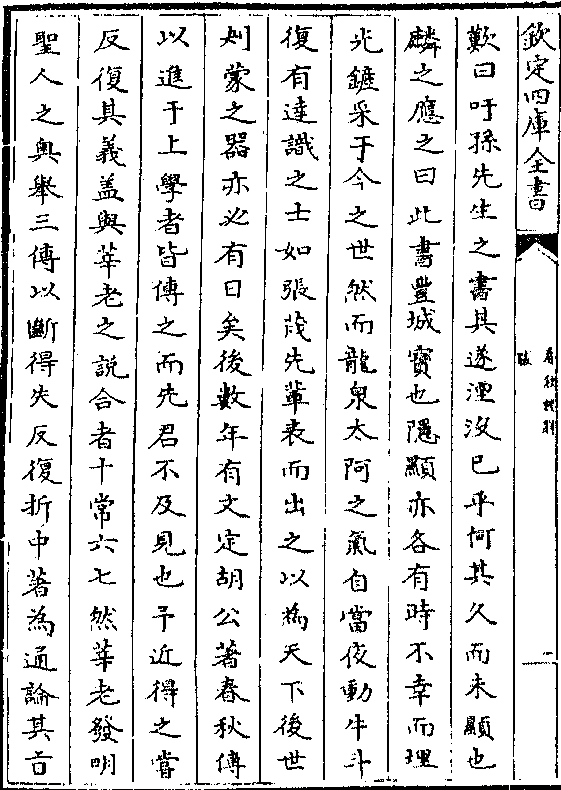 欽定四庫全書
春秋經解
跋
一
歎曰吁孫先生之書其遂湮沒已乎何其久而未顯也
麟之應之曰此書豐城寳也隱顯亦各有時不幸而埋
光鏟采于今之世然而龍泉太阿之氣自當夜動牛斗
復有達識之士如張茂先輩表而出之以為天下後世
刔蒙之器亦必有日矣後數年有文定胡公著春秋傳
以進于上學者皆傳之而先君不及見也予近得之嘗
反復其義盖與莘老之説合者十常六七然莘老發明
聖人之奥舉三傳以斷得失反復折中著為通論其㫖